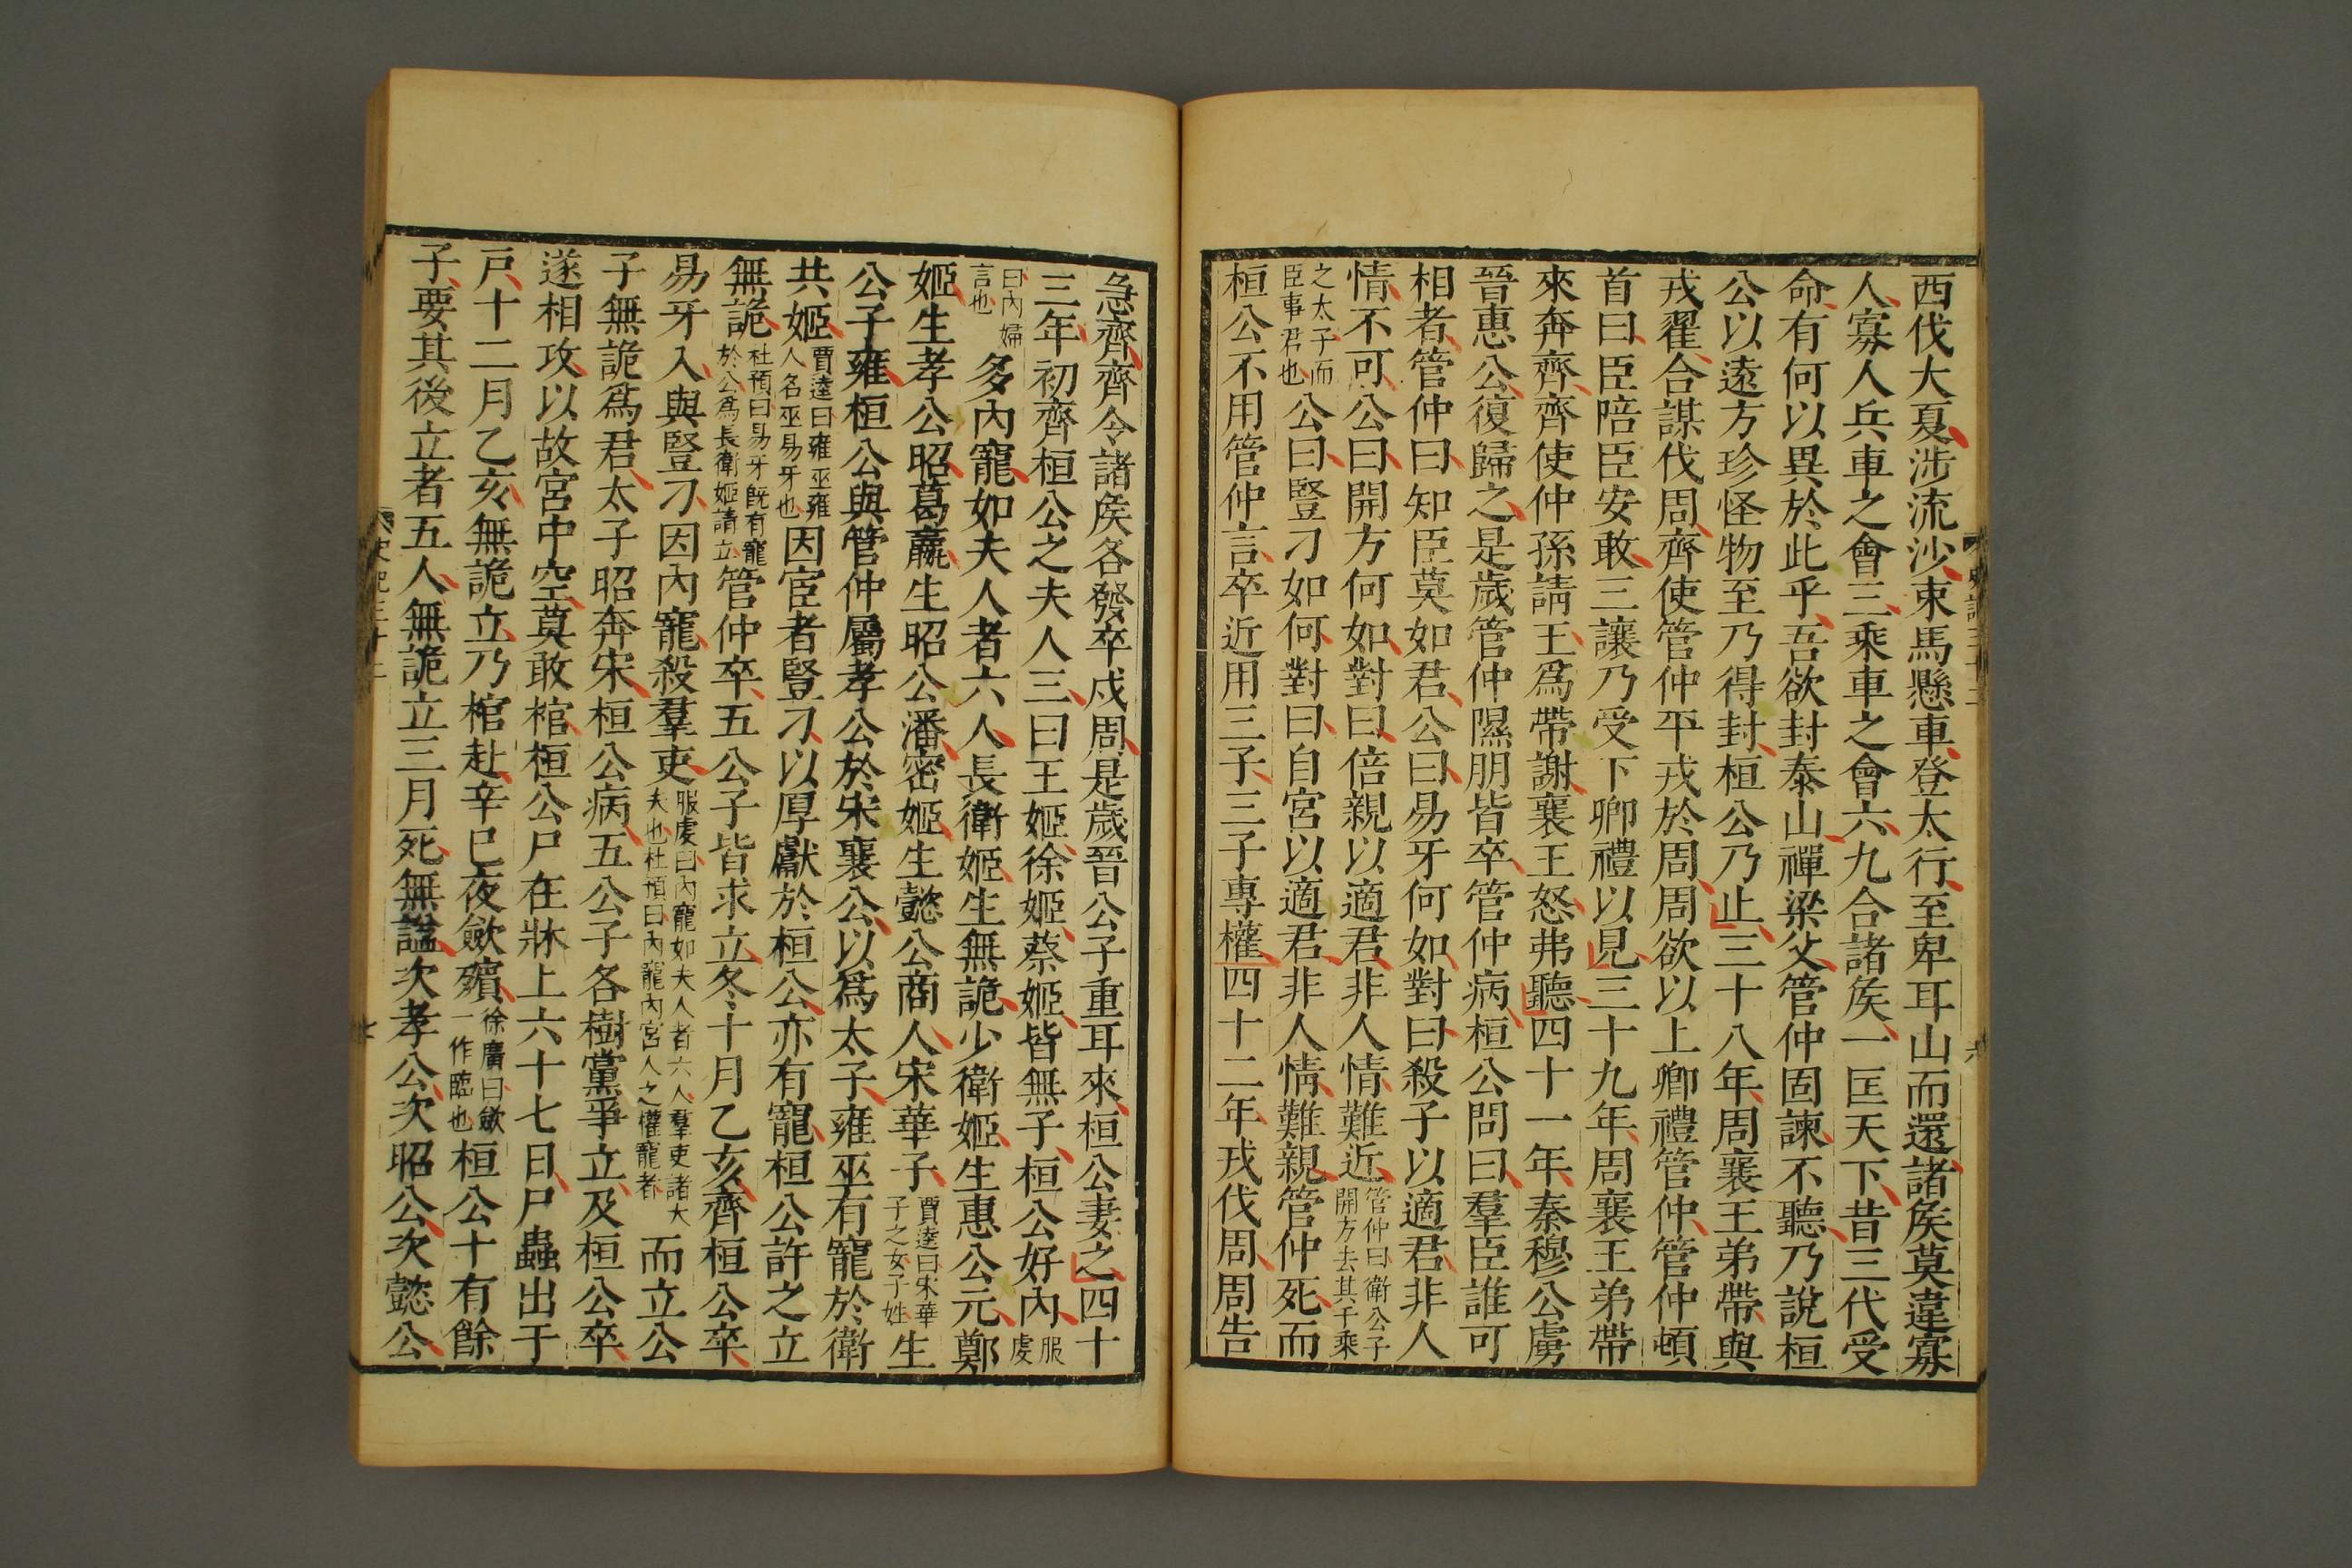 西伐大夏涉流沙束馬懸車登太行至卑耳山而還諸矦莫違寡
人寡人兵車之會三乘車之會六九合諸矦一匡天下昔三代受
命有何以異於此乎吾欲封泰山禪梁父管仲固諫不聽乃說桓
公以遠方珍怪物至乃得封桓公乃止三十八年周襄王弟帶與
戎翟合謀伐周齊使管仲平戎於周周欲以上卿禮管仲管仲頓
首曰臣陪臣安敢三讓乃受下卿禮以見三十九年周襄王弟帶
來奔齊齊使仲孫請王爲帶謝襄王怒弗聽四十一年秦穆公虜
晉惠公復歸之是歲管仲隰朋皆卒管仲病桓公問曰羣臣誰可
相者管仲曰知臣莫如君公曰易牙何如對曰殺子以適君非人
情不可公曰開方何如對曰倍親以適君非人情難近管仲曰衛公子開方去其千乘
之太子而臣事君也公曰豎刁如何對曰自宮以適君非人情難親管仲死而
桓公不用管仲言卒近用三子三子專權四十二年戎伐周周告
急齊齊令諸矦各發卒戍周是歲晉公子重耳來桓公妻之四十
三年初齊桓公之夫人三曰王姬徐姬蔡姬皆無子桓公好內服虔
曰內婦言也多內寵如夫人者六人長衛姬生無詭少衛姬生惠公元鄭
姬生孝公昭葛嬴生昭公潘密姬生懿公商人宋華子賈逵曰宋華子之女子姓生
公子雍桓公與管仲屬孝公於宋襄公以爲太子雍巫有寵於衛
共姬賈逵曰雍巫雍人名巫易牙也因宦者豎刁以厚獻於桓公亦有寵桓公許之立
無詭杜預曰易牙旣有寵於公爲長衛姬請立管仲卒五公子皆求立冬十月乙亥齊桓公卒
易牙入與豎刁因內寵殺羣吏服虔曰內寵如夫人者六人羣吏諸大夫也杜預曰內寵內宮人之權寵者而立公
子無詭爲君太子昭奔宋桓公病五公子各樹黨爭立及桓公卒
遂相攻以故宮中空莫敢棺桓公尸在牀上六十七日尸蟲出于
戶十二月乙亥無詭立乃棺赴辛巳夜斂殯徐廣曰斂一作臨也桓公十有餘
子要其後立者五人無詭立三月死無諡次孝公次昭公次懿公